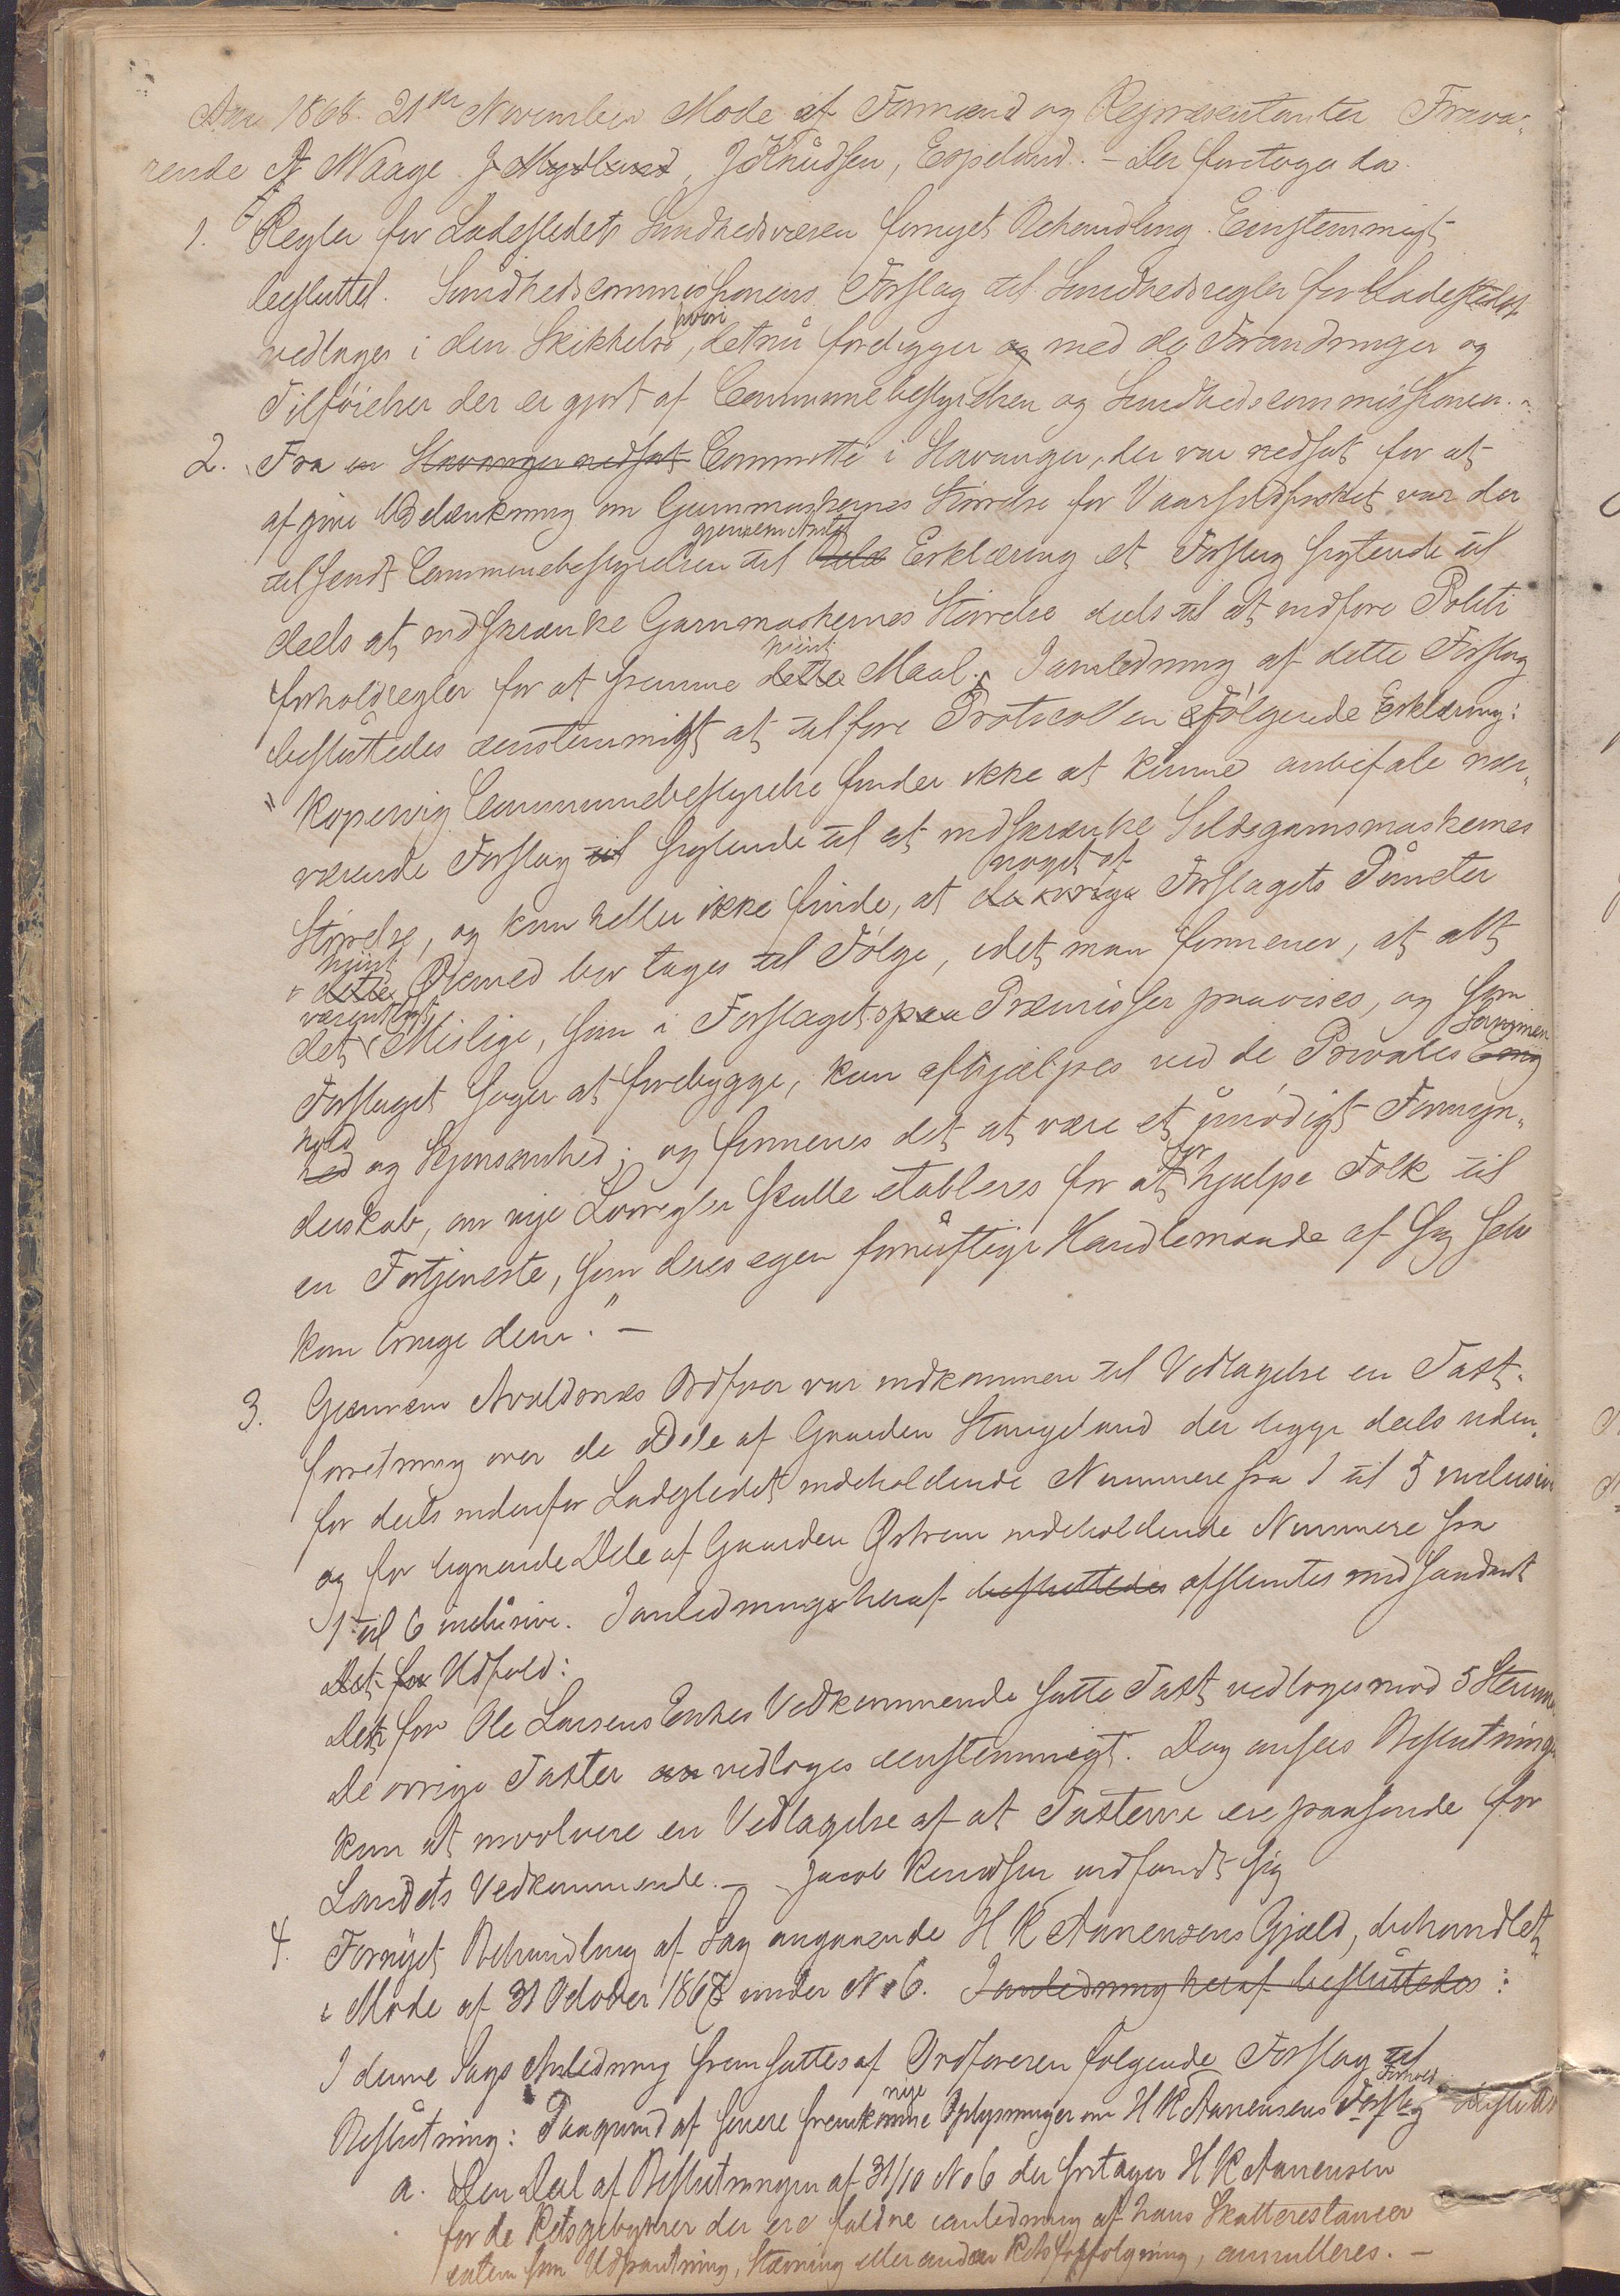 Aar 1868. 21de November Møde af Formænd og Repræsentanter Fravæ-
rende A Waage J Mydland, J Knudsen, Espeland. – Der foretoges da
1. Regler for Ladestedets Sundhedsvæsen fornyet Behandling. Eenstemmigt
besluttet. Sundhedscommissionens Forslag til Sundhedsregler for Ladestedet
vedtages i den Skikkelse, hvori det nu foreligger og med de Forandringer og
Tilføielser der er gjort af Communebestyrelsen og Sundhedscommissionen. –
2. Fra en Stavanger nedsat Committe i Stavanger, der var nedsat for at
afgive Betænkning om Garnmaskernes Størrelse for Vaarsildfisket var der
tilsendt Communebestyrelsen til gjennem Amtet Erklæring et Forslag sigtende til
deels at indskrænke Garnmaskernes Størrelse deels til at indføre Politi
forholdsregler for at fremme dette hiint Maal. I anledning af dette Forslag
besluttedes eenstemmigt at tilføre Protocollen følgende Erklæring:
"Kopervig Communebestyrelse finder ikke at kunne anbefale nær-
værende Forslag til sigtende til at indskrænke Sildegarnsmaskernes
Størrelse, og kan heller ikke finde, at de øvrige noget af Forslagets Puncter
i dette hiint Øiemed bør tages til Følge, idet man formener, at alt
det væsentligt Mislige, som i Forslagets Præmisser paavises, og som
Forslaget søger at forebygge, kan afhjælpes ved de Privates Fornuen
hold og Skjønsomhed; og formenes det at være et unødigt Formyn-
derskab, om nye Lovregler skulle etableres for at for hjælpe Folk til
en Fortjeneste, som deres egen fornuftige Handlemaade af sig selv
kan bringe dem." –
3. Gjennem Avaldsnes Ordfører var indkommen til Vedtagelse en Taxt-
forretning over de Dele af Gaarden Stangeland der ligge deels uden-
for deels indenfor Ladestedet indeholdende Nummere fra 1 til 5 inclusive
og for lignende Dele af Gaarden Østrem indeholdende Nummere fra
1 til 6 inclusive. I anledning heraf besluttedes afstemtes med saadant
Det for Udfald:
Den for Ole Larsens Enkes Vedkommende satte Taxt vedtoges mod 5 Stemmer
De øvrige Taxter an vedtoges eenstemmigt. Dog ansees Beslutningen
kun at involvere en Vedtagelse af at Taxterne ere passende for
Landets Vedkommende. – Jacob Knudsen indfandt sig
4. Fornyet Behandling af Sag angaaende H K Aanensens Gjæld, behandlet
i Møde af 31 October 1868 under No 6. I anledning heraf besluttedes:
I denne Sags Anledning fremsattes af Ordføreren følgende Forslag til
Beslutning: Paagrund af senere fremkomne nye Oplysninger om H K Aanensens Forslag Forhold
a. Den Deel af Beslutningen af 31/10 No 6 der fritager H K Aanensen
for de Retsgebyrer der ere faldne i anledning af hans Skatterestancer
enten som Udpantning, Stævning eller anden Retsforfølgning, annulleres. –